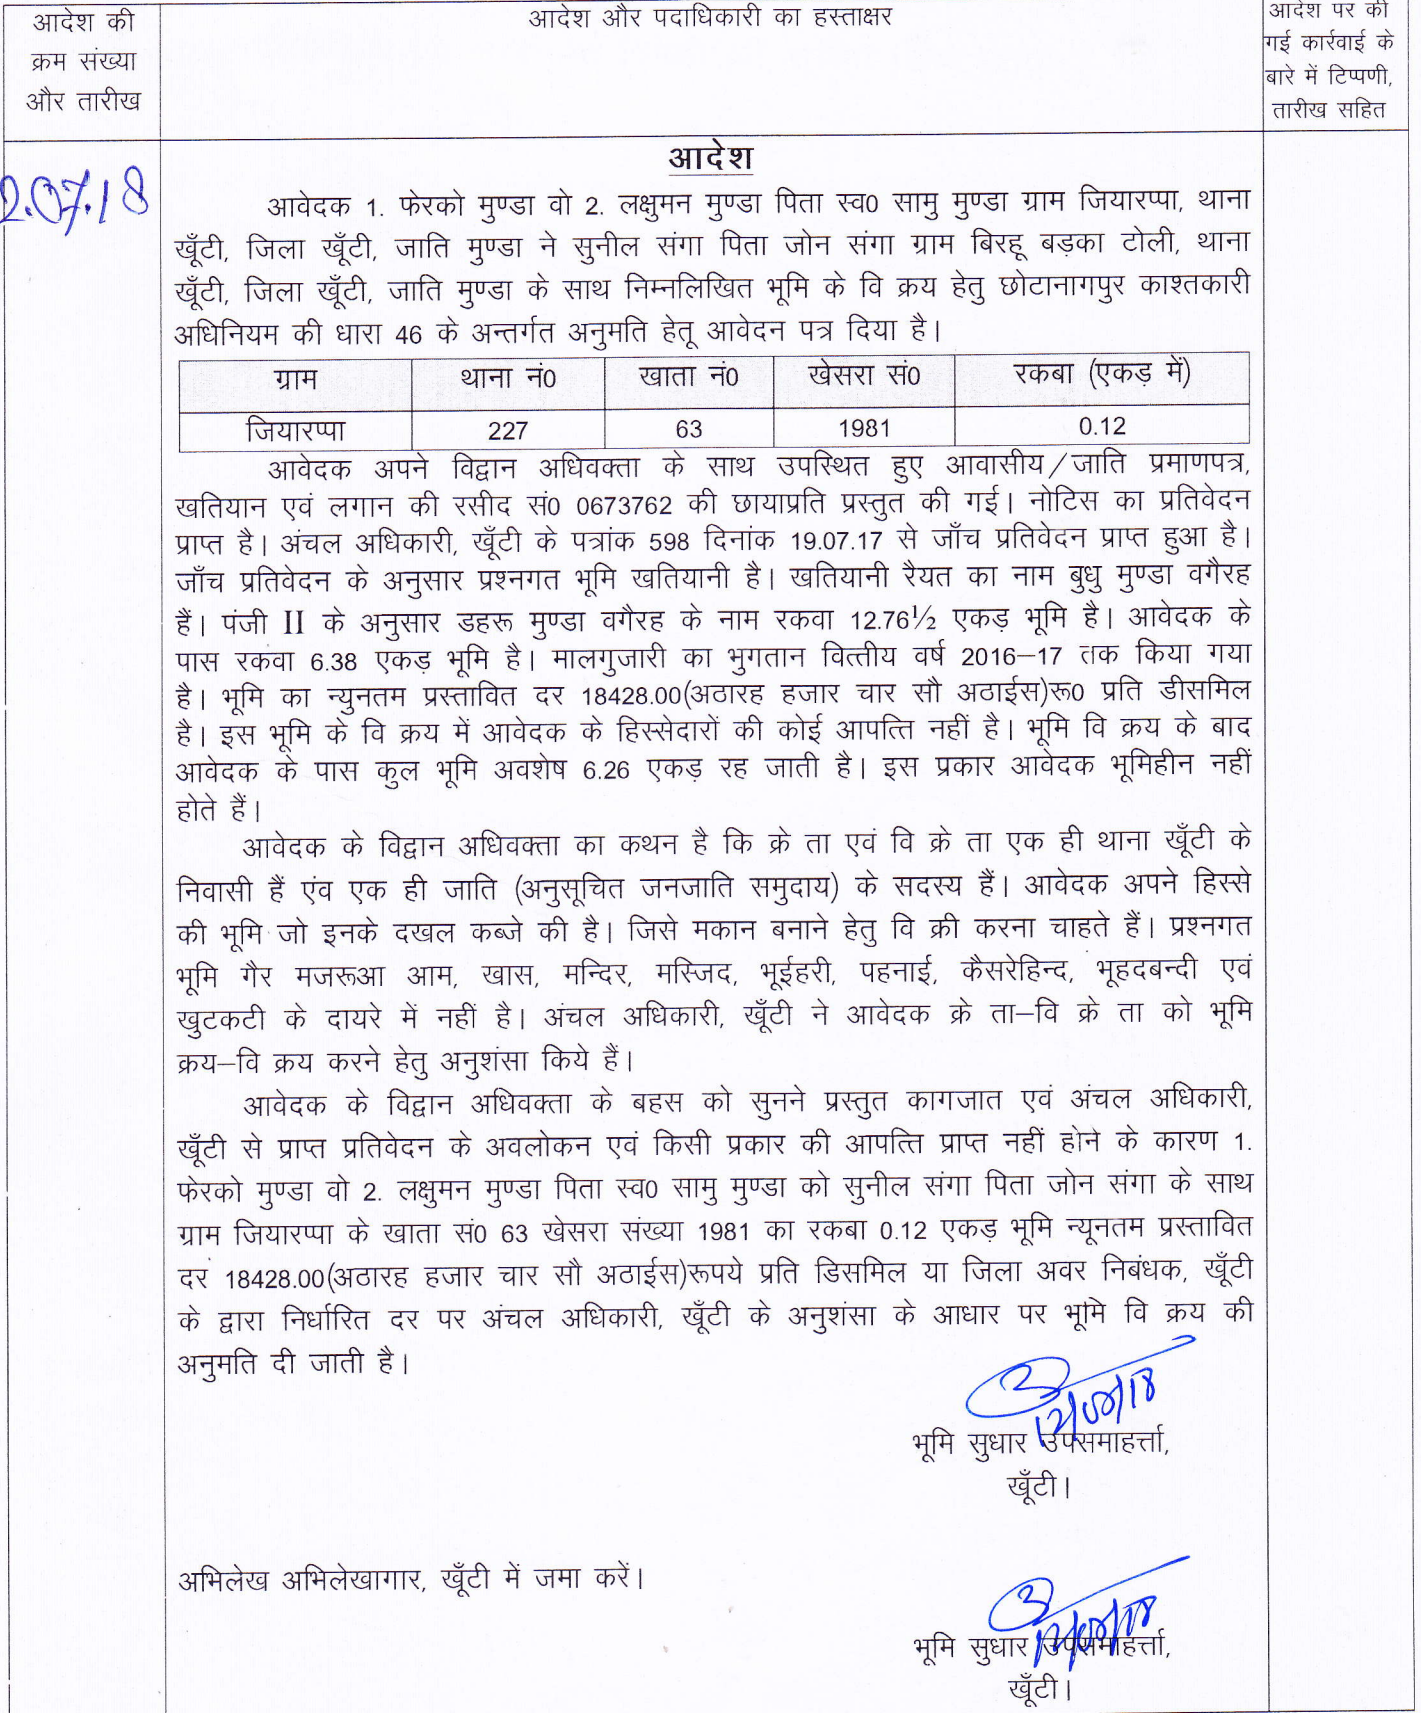 आदेश की
क्रम संख्या
और तारीख
आदेश और पदाधिकारी का हस्ताक्षर
आदेश पर की
गई कार्रवाई के
बारे में टिप्पणी,
तारीख सहित
2.07.18
आदेश
आवेदक 1. फेरको मुण्डा वो 2. लक्षुमन मुण्डा पिता स्व0 सामु मुण्डा ग्राम जियारप्पा, थाना
खूँटी, जिला खूँटी, जाति मुण्डा ने सुनील संगा पिता जोन संगा ग्राम बिरहू बड़का टोली, थाना
खूँटी, जिला खूँटी, जाति मुण्डा के साथ निम्नलिखित भूमि के वि क्रय हेतु छोटानागपुर काश्तकारी
अधिनियम की धारा 46 के अन्तर्गत अनुमति हेतू आवेदन पत्र दिया है।
ग्राम थाना नं0 खाता नं0 खेसरा सं0 रकबा (एकड़ में)
जियारप्पा 227 63 1981 0.12
आवेदक अपने विद्वान अधिवक्ता के साथ उपस्थित हुए आवासीय/जाति प्रमाणपत्र,
खतियान एवं लगान की रसीद सं0 0673762 की छायाप्रति प्रस्तुत की गई। नोटिस का प्रतिवेदन
प्राप्त है। अंचल अधिकारी, खूँटी के पत्रांक 598 दिनांक 19.07.17 से जाँच प्रतिवेदन प्राप्त हुआ है।
जाँच प्रतिवेदन के अनुसार प्रश्नगत भूमि खतियानी है। खतियानी रैयत का नाम बुधु मुण्डा वगैरह
हैं। पंजी II के अनुसार डहरू मुण्डा वगैरह के नाम रकवा 12.76½ एकड़ भूमि है। आवेदक के
पास रकवा 6.38 एकड़ भूमि है। मालगुजारी का भुगतान वित्तीय वर्ष 2016–17 तक किया गया
है। भूमि का न्युनतम प्रस्तावित दर 18428.00(अठारह हजार चार सौ अठाईस)रू0 प्रति डीसमिल
है। इस भूमि के वि क्रय में आवेदक के हिस्सेदारों की कोई आपत्ति नहीं है। भूमि वि क्रय के बाद
आवेदक के पास कुल भूमि अवशेष 6.26 एकड़ रह जाती है। इस प्रकार आवेदक भूमिहीन नहीं
होते हैं।
आवेदक के विद्वान अधिवक्ता का कथन है कि क्रे ता एवं वि क्रे ता एक ही थाना खूँटी के
निवासी हैं एंव एक ही जाति (अनुसूचित जनजाति समुदाय) के सदस्य हैं। आवेदक अपने हिस्से
की भूमि जो इनके दखल कब्जे की है। जिसे मकान बनाने हेतु वि क्री करना चाहते हैं। प्रश्नगत
भूमि गैर मजरूआ आम, खास, मन्दिर, मस्जिद, भूईहरी, पहनाई, कैसरेहिन्द, भूहदबन्दी एवं
खुटकटी के दायरे में नहीं है। अंचल अधिकारी, खूँटी ने आवेदक क्रे ता–वि क्रे ता को भूमि
क्रय–वि क्रय करने हेतु अनुशंसा किये हैं।
आवेदक के विद्वान अधिवक्ता के बहस को सुनने प्रस्तुत कागजात एवं अंचल अधिकारी,
खूँटी से प्राप्त प्रतिवेदन के अवलोकन एवं किसी प्रकार की आपत्ति प्राप्त नहीं होने के कारण 1.
फेरको मुण्डा वो 2. लक्षुमन मुण्डा पिता स्व0 सामु मुण्डा को सुनील संगा पिता जोन संगा के साथ
ग्राम जियारप्पा के खाता सं0 63 खेसरा संख्या 1981 का रकबा 0.12 एकड़ भूमि न्यूनतम प्रस्तावित
दर 18428.00(अठारह हजार चार सौ अठाईस)रूपये प्रति डिसमिल या जिला अवर निबंधक, खूँटी
के द्वारा निर्धारित दर पर अंचल अधिकारी, खूँटी के अनुशंसा के आधार पर भूमि वि क्रय की
अनुमति दी जाती है।
भूमि सुधार उपसमाहर्त्ता,
खूँटी।
अभिलेख अभिलेखागार, खूँटी में जमा करें।
भूमि सुधार उपसमाहर्त्ता,
खूँटी।